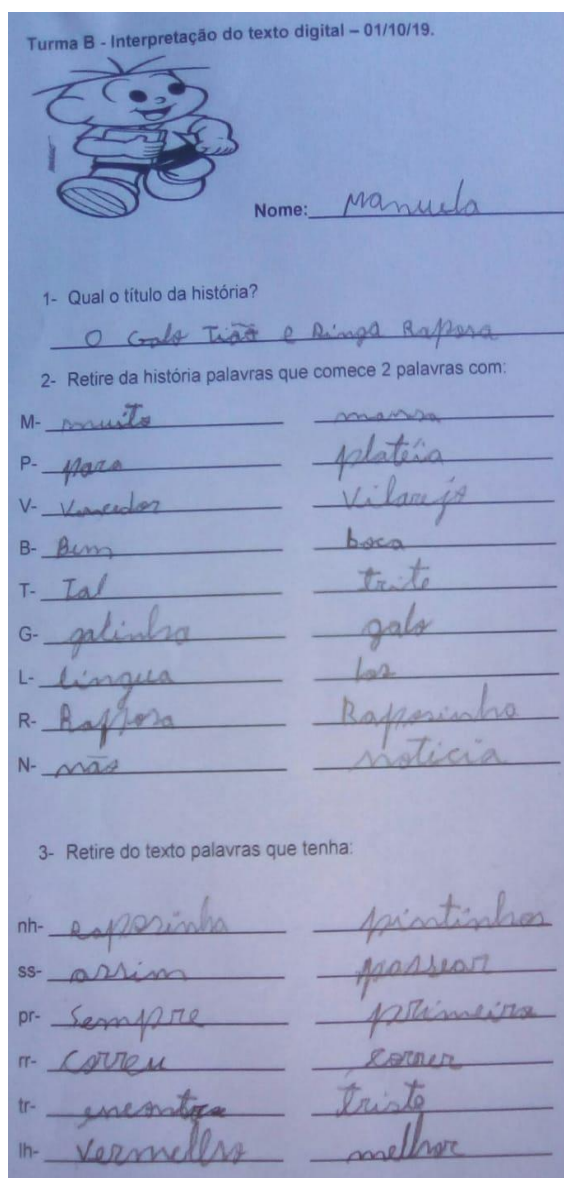 Turma B - Interpretação do texto digital – 01/10/19.
Nome: Manuela
1- Qual o título da história?
O Galo Tião e Dinga Raposa
2- Retire da história palavras que comece 2 palavras com:
M- muito mansa
P- para platéia
V- Vencedor Vilarejo
B- Bem boca
T- Tal trite
G- galinha galo
L- língua
R- Rapposa Raposinha
N- não notícia
3- Retire do texto palavras que tenha:
nh- Raposinha pintinhos
ss- assim passear
pr- Sempre primeira
rr- correu correr
tr- encontra triste
lh- Vermelho melhor